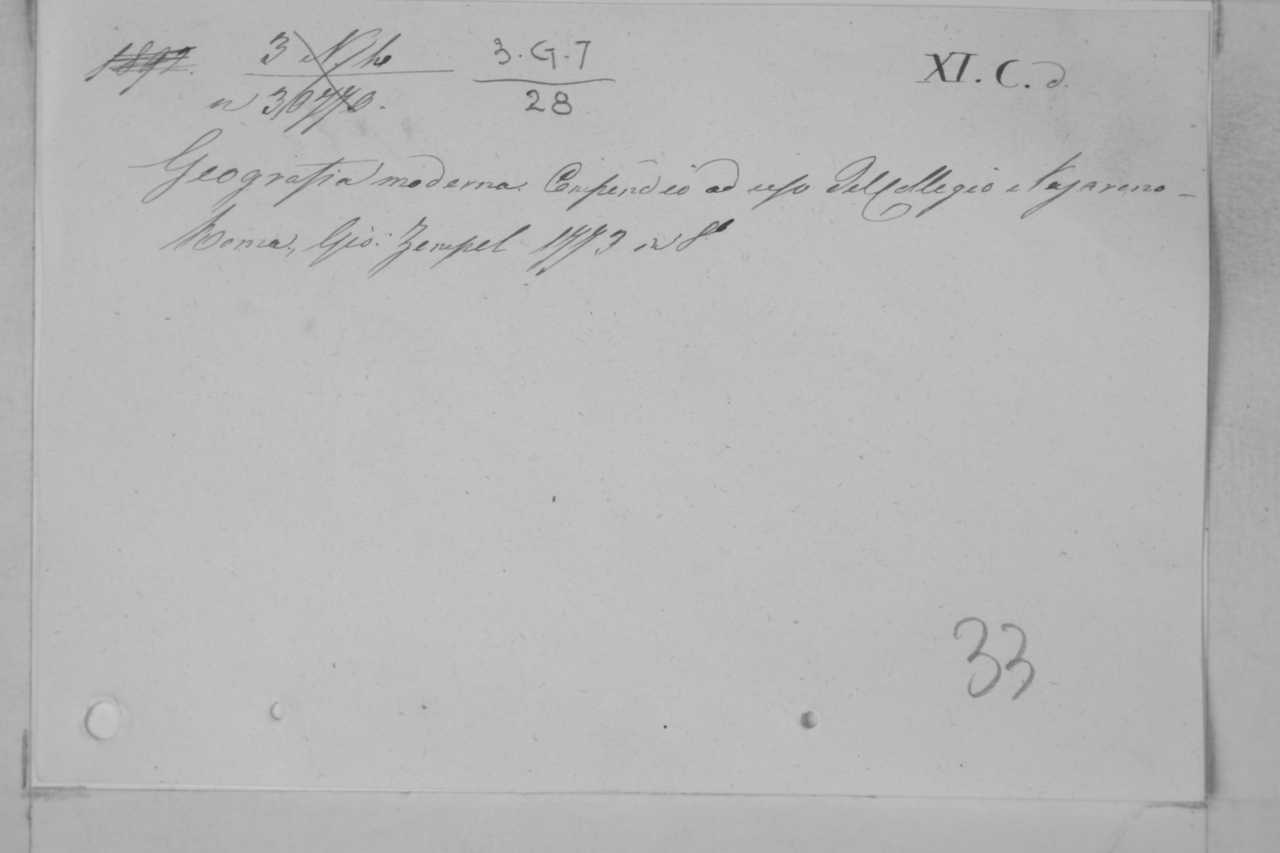 3.G.7
28
XI. C. d.
Geografia moderna. Compendio ad uso del Collegio Nazareno -
Roma, Gio: Zempel 1773 in 8º
33